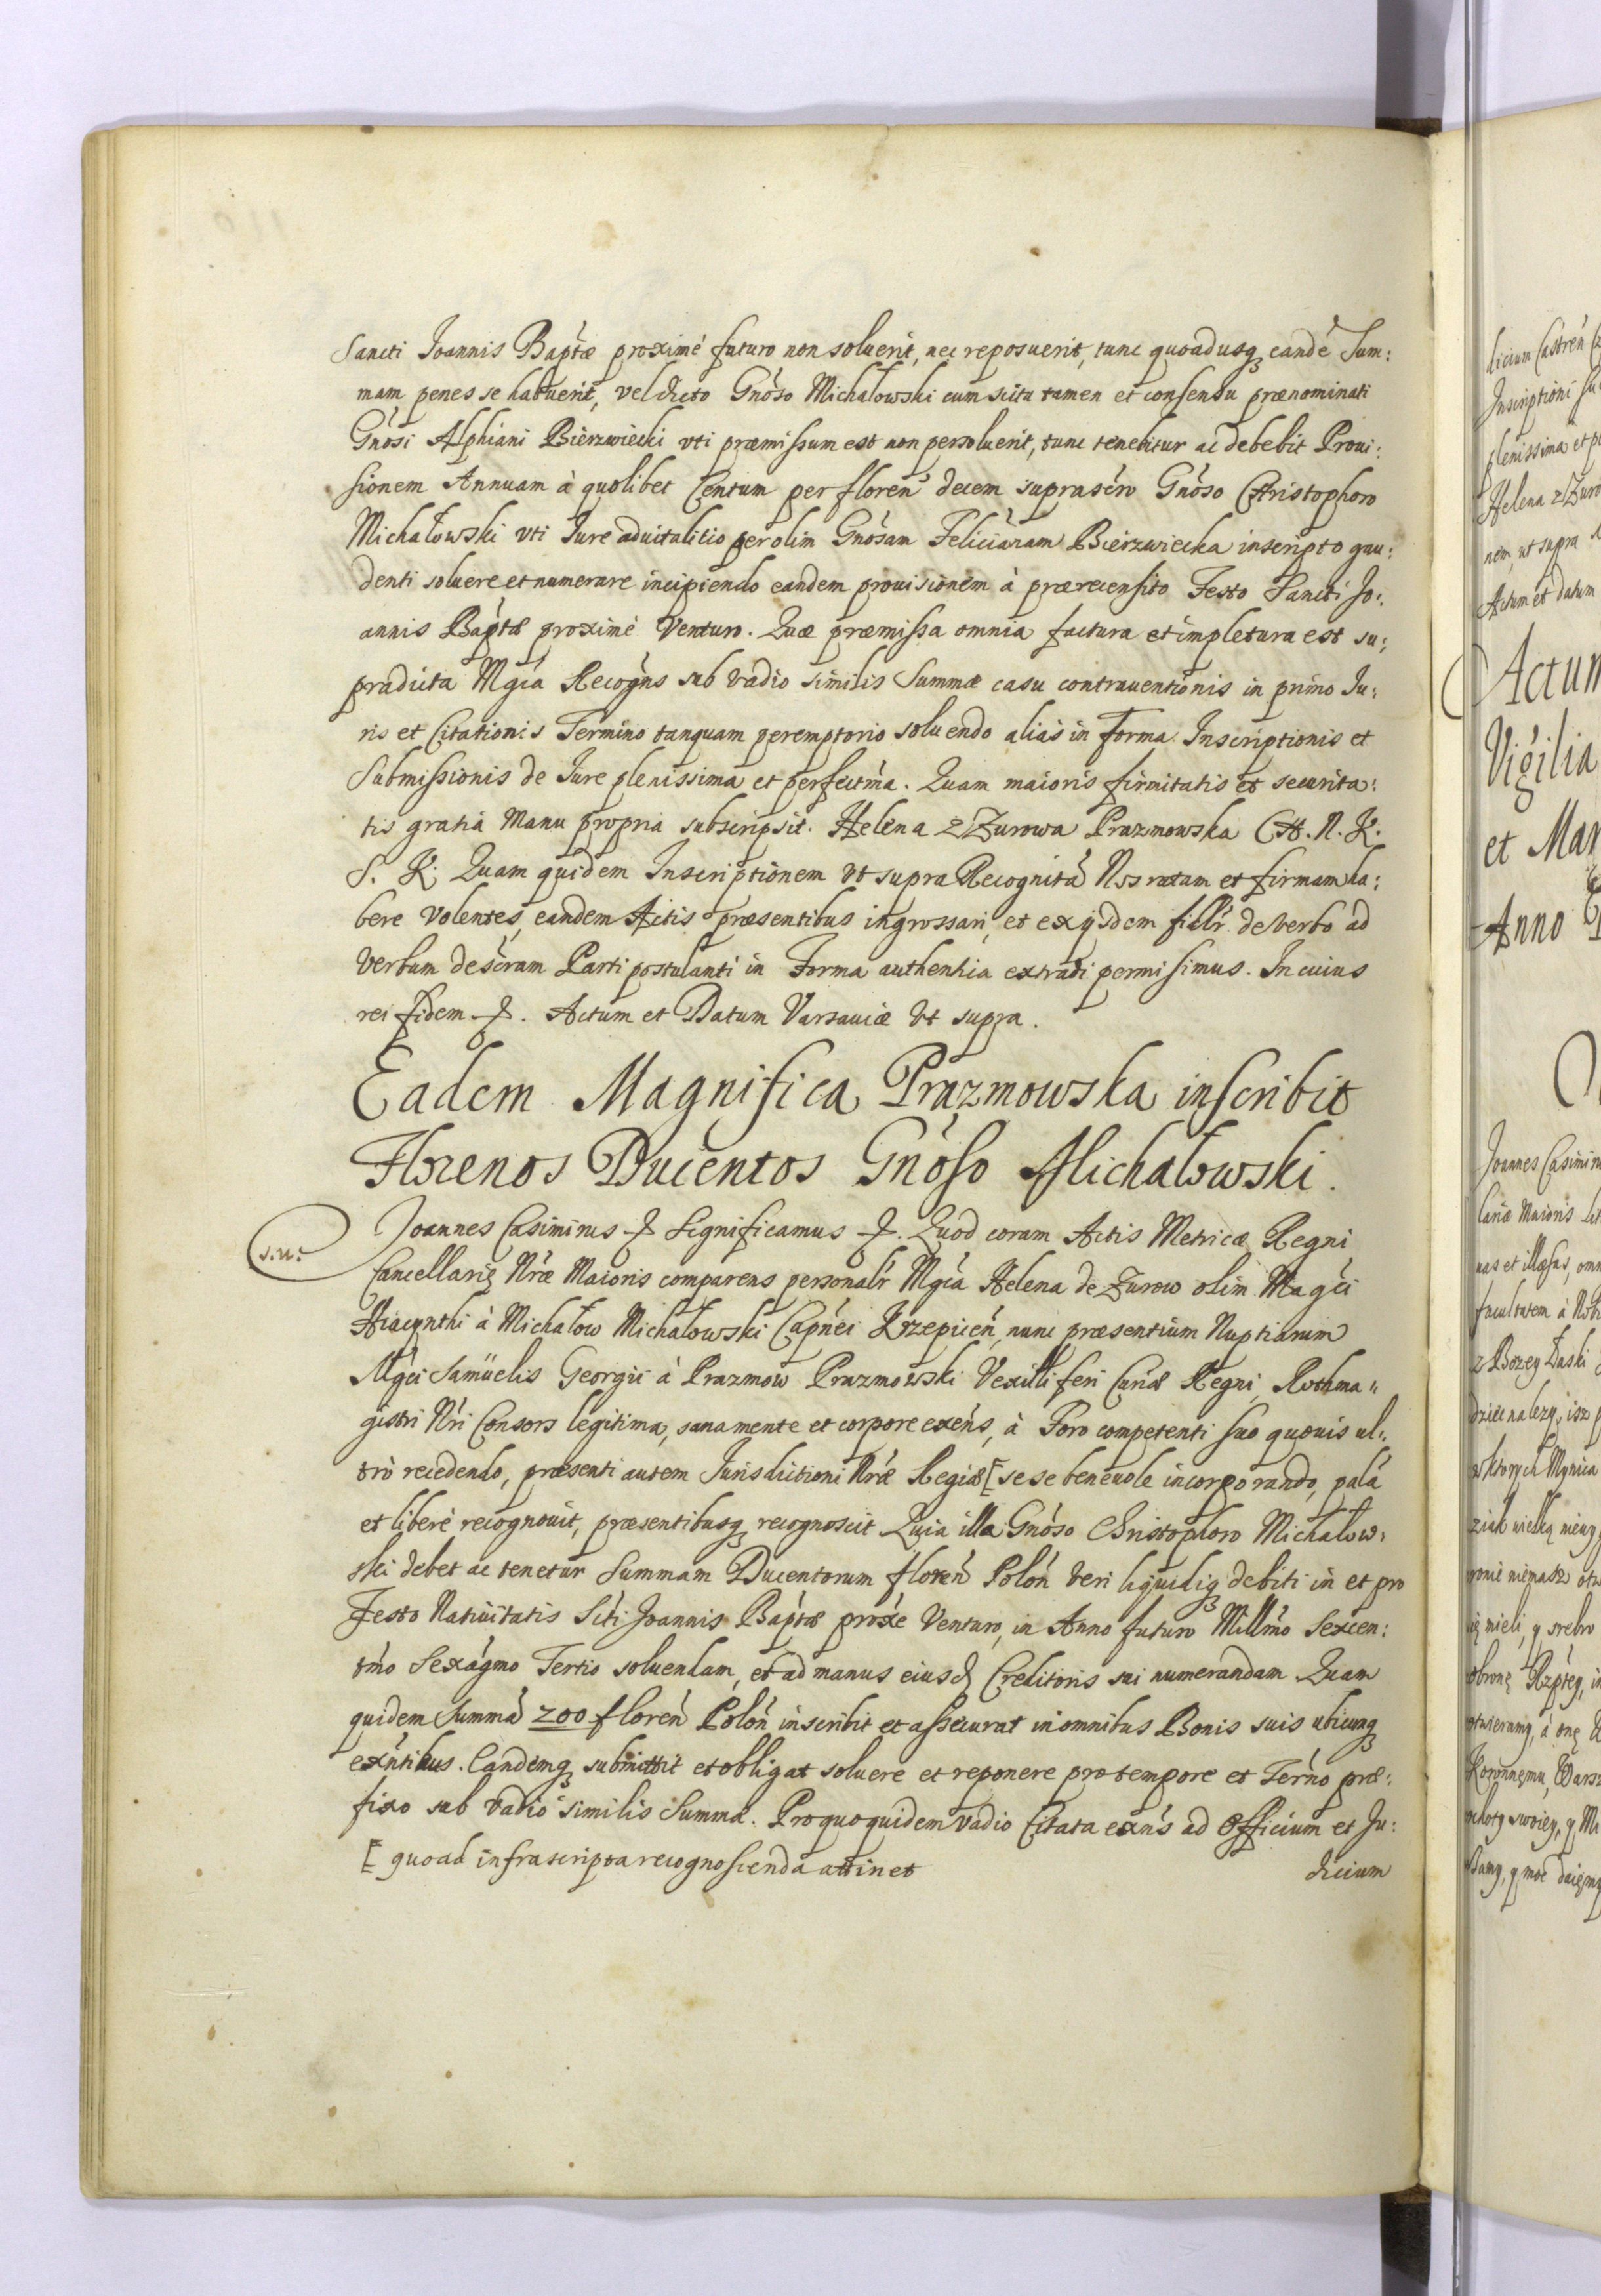 Sancti Joannis Baptæ proximé futuro non soluerit, nec reposuerit, tunc quoadusq eandē Sum:
mam penes se habuerit, vel dicto Gnoso Michałowski cum scitu tamen et consensu prænominati
Gnosi Alphiani Bierzwiecki vti præmissum est non persoluerit, tunc tenebitur ac debebit Proui:
sionem Annuam à quolibet Centum per floren decem suprascro Gnoso Christophoro
Michałowski vti Jure aduitalitio per olim Gnosam Felicianam Bierzwiecka inscripto gau:
denti soluere et numerare incipiendo eandem prouisionem à prærecensito Festo Sancti Jo:
annis Baptæ proximé Venturo. Quæ præmissa omnia factura et impletura est su:
pradicta Mgca Recogns sub vadio similis Summæ casu contrauentionis in primo Ju:
ris et Citationis Termino tanquam peremptorio soluendo aliàs in forma Inscriptionis et
Submissionis de Jure plenissima et perfectma. Quam maioris firmitatis et securita:
tis gratia Manu propria subscripsit. Helena z Zurowa Prazmowska Ch. N. K.
S. K. Quam quidem Inscriptionem vt supra Recognitā Nos ratam et firmam ha:
bere Volentes, eandem Actis præsentibus ingrossari, et ex ysdem fidlr de verbo ad
Verbum descram Parti postulanti in Forma authentica extradi permisimus. In cuius
rei fidem &. Actum et Datum Varsauiæ vt supra.
Eadem Magnifica Prazmowska inscribit
Florenos Ducentos Gnoso Michałowski.
s.n:
Joannes Casimirus & Significamus &. Quod coram Actis Metricæ Regni
Cancellarię Nræ Maioris comparens personalr Mgca Helena de Zurow olim Magci
Hiacynthi à Michałow Michałowski Capnei Krzepicen, nunc præsentium Nuptiarum
Mgci Samüelis Georgii à Prazmow Prazmowski Vexilliferi Curiæ Regni, Rothma"
gistri Nri Consors legitima, sana mente et corpore exens, à Foro competenti suo quouis ul:
trò recedendo, præsenti autem Jurisdictioni Nræ Regiæ [ sese beneuole incorporando, palā
et liberè recognouit, præsentibusq recognoscit Quia illa Gnoso Christophoro Michałow:
ski debet ac tenetur Summam Ducentorum floren Polon veri liquidiq debiti in et pro
Festo Natiuitatis Scti Joannis Baptæ proxe Venturo, in Anno futuro Millmo Sexcen:
tmo Sexagmo Tertio soluendam, et ad manus eiusd Creditoris sui numerandam Quam
quidem Summā 200 floren Polon inscribit et assecurat in omnibus Bonis suis ubicunq
exntibus. Eandemq submittit et obligat soluere et reponere pro tempore et Terno præ:
fixo sub vadio similis Summa. Pro quo quidem vadio Citata exns ad Officium et Ju:
[ quoad infrascripta recognoscenda attinet
dicium
licium Castren
Inscriptioni
plenissima et
Helena z Zuro
nem, ut supra
Actum et datum
Actum
Vigilia
et Mar
Anno
Joannes Casimir
lariæ Maioris
uas et illæsas, omn
facultatem à
z Bozey Łaski
ktorych
wielką
mieli, y srebro